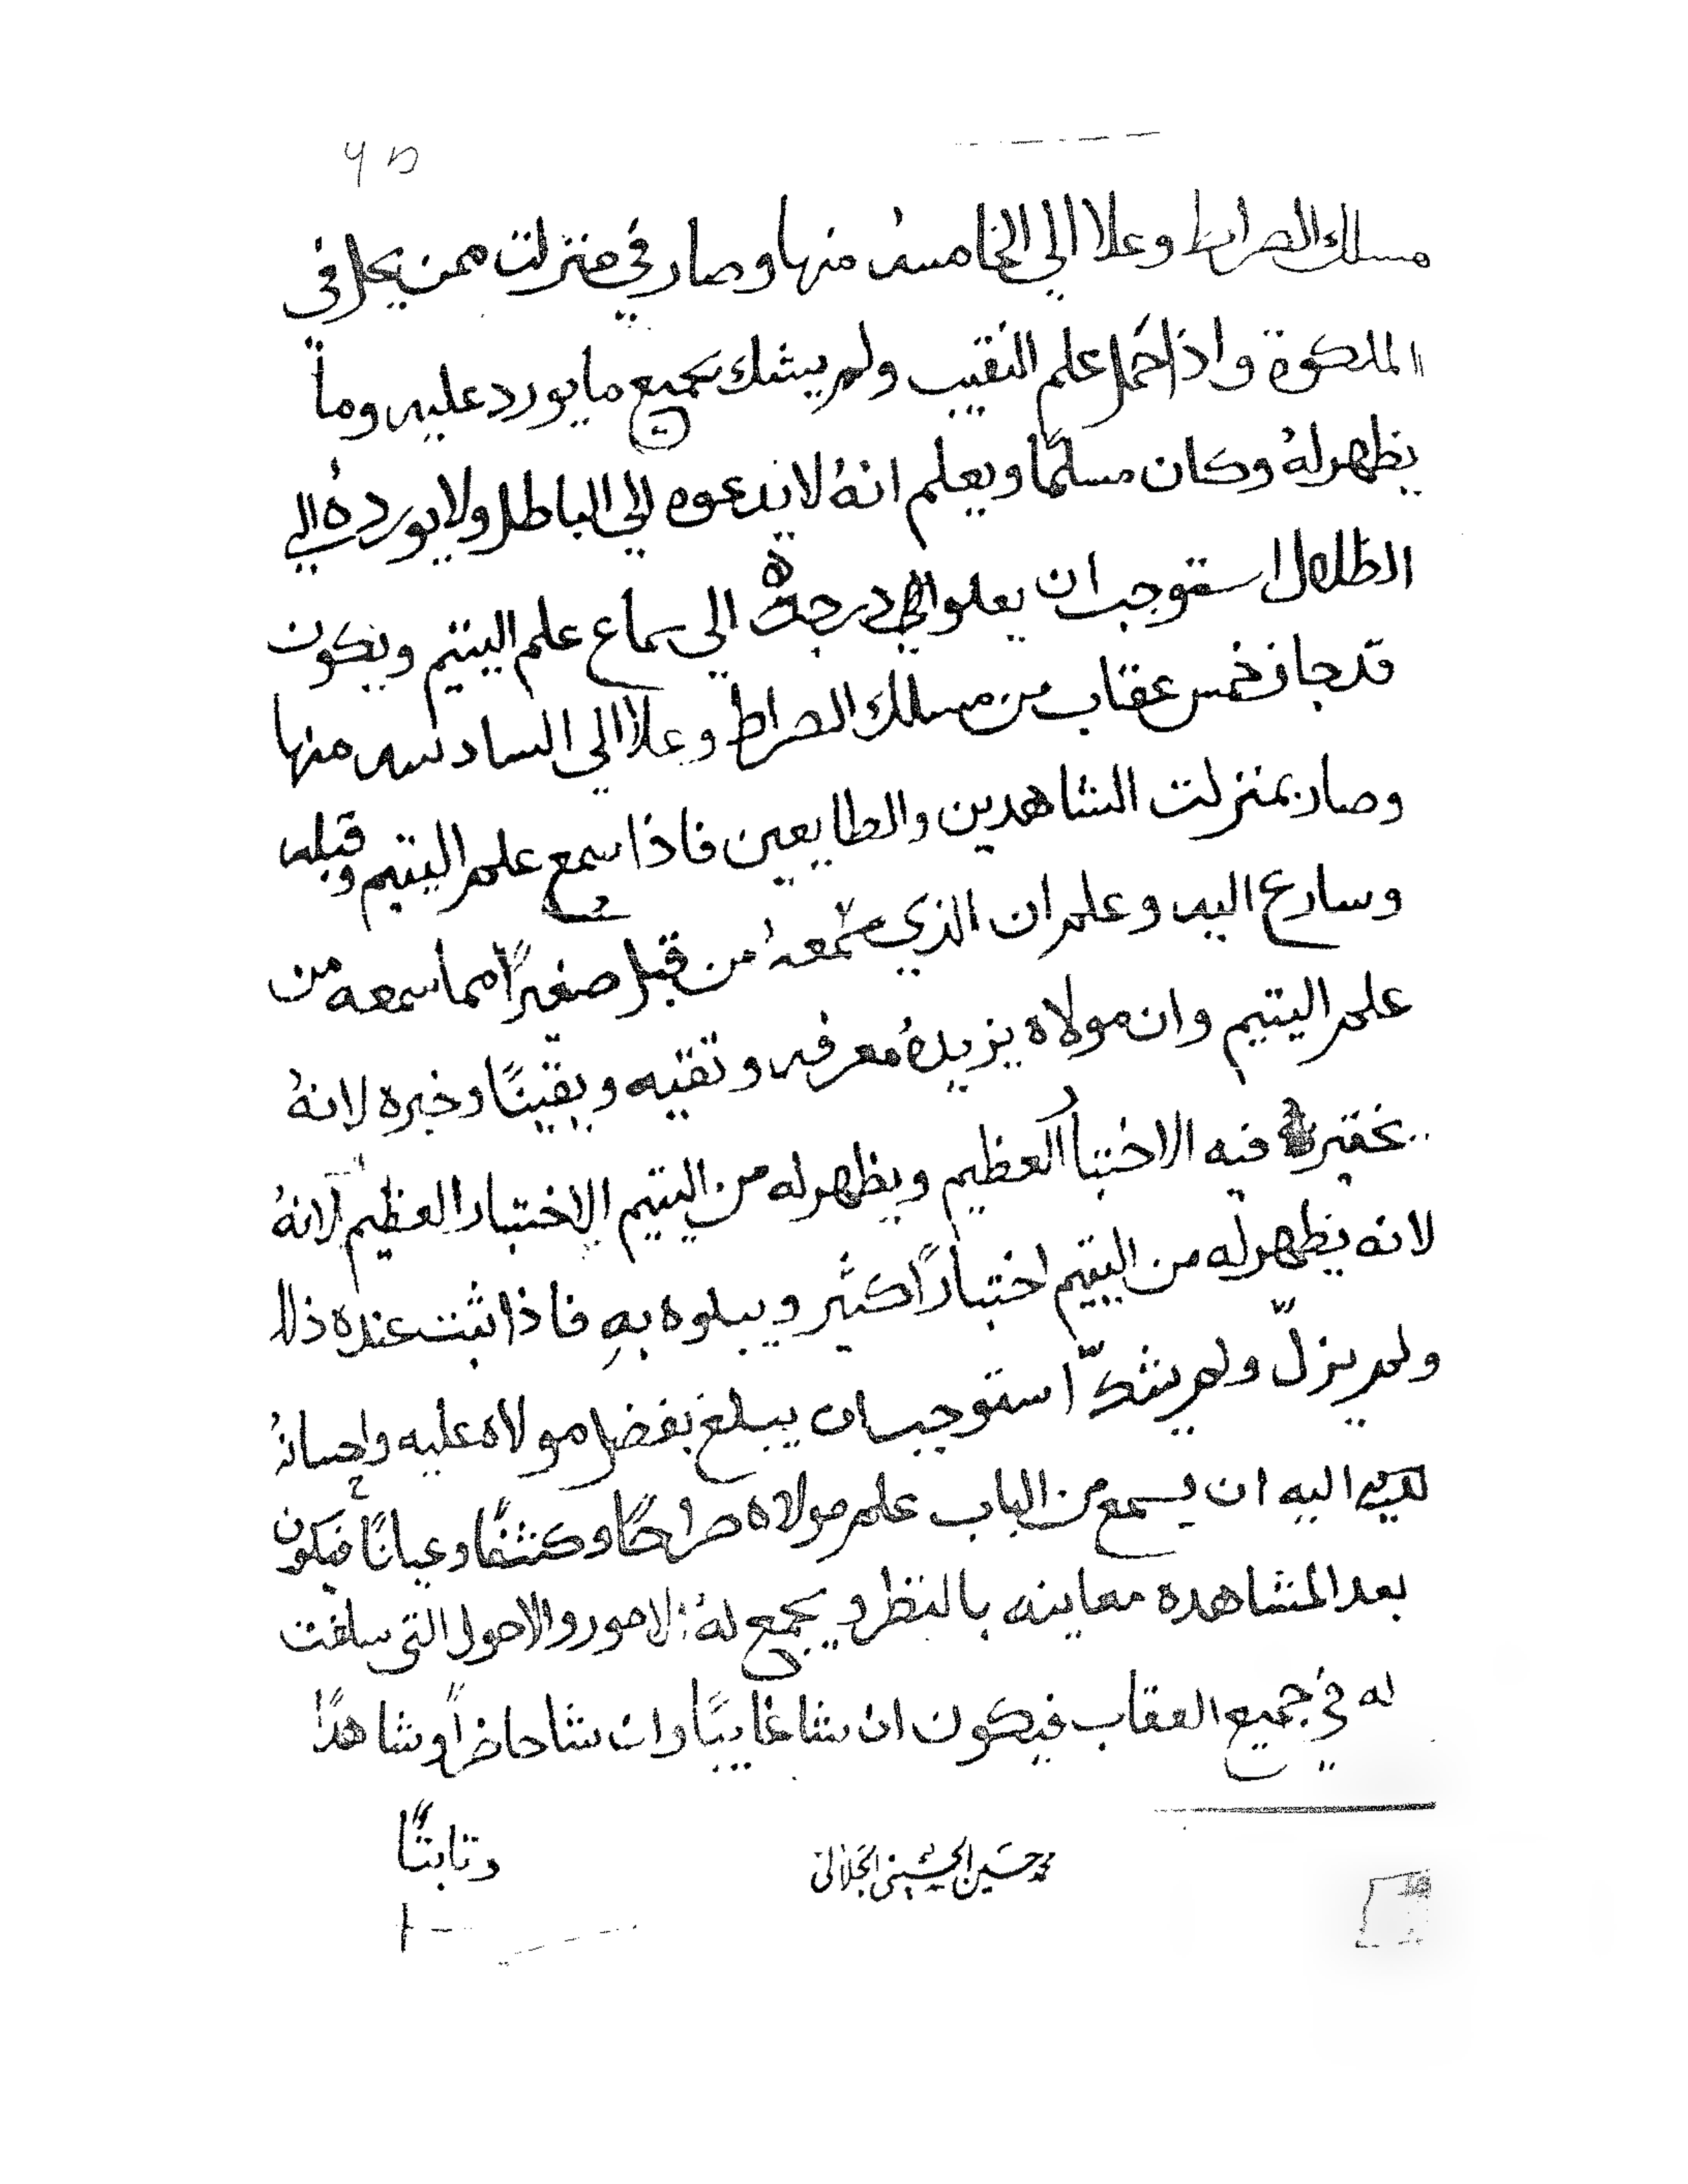 مسلك الصراط وعلا الي الخامسه منها وصار في منزلت ممن يحل في
الملكوة واذا احمل علم النقيب ولم يشك بجميع ما يورد عليه وما
يظهر لهُ وكان مسلمًا ويعلم انهُ لا يدعوه الي الباطل ولا يوردهُ الي
الظلال استوجب ان يعلوا الي درجة الي سماع علم اليتيم ويكون
قد جاز خمس عقاب من مسلك الصراط وعلا الي السادسه منها
وصار بمنزلت الشاهدين والطايعين فاذا سمع علم اليتيم وقبله
وسارع اليه وعلم ان الذي سمعهُ من قبل صغيرًا مما سمعه من
علم اليتيم وان مولاه يزيدهُ معرفه وتقيه ويقينًا وخبره لانهُ
يختبره فيه الاختبار العظيم ويظهر له من اليتيم الاختبار العظيم لانهُ
لانه يظهر له من اليتيم اختبارًا كثير ويبلوه بهِ فاذا ثبت عنده ذلك
ولم يزلّ ولم يشكّ استوجب ان يبلغ بفضل مولاه عليه واحسانهُ
لديه اليه ان يسمع من الباب علم مولاه صراحًا وكشفًا وعيانًا فيكون
بعد المشاهده معاينه بالنظر ويجمع لهُ الامور والاحول التي سلفت
له في جميع العقاب فيكون ان شا غايبًا وان شا حاضرًا وشاهدًا
وثابتًا
محمد حسين الحسيني الجلالي